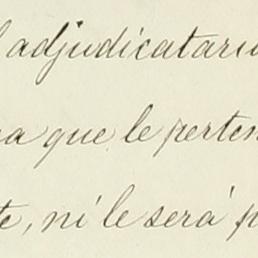 l adjudicatari
a que le perten
te, ni le será p